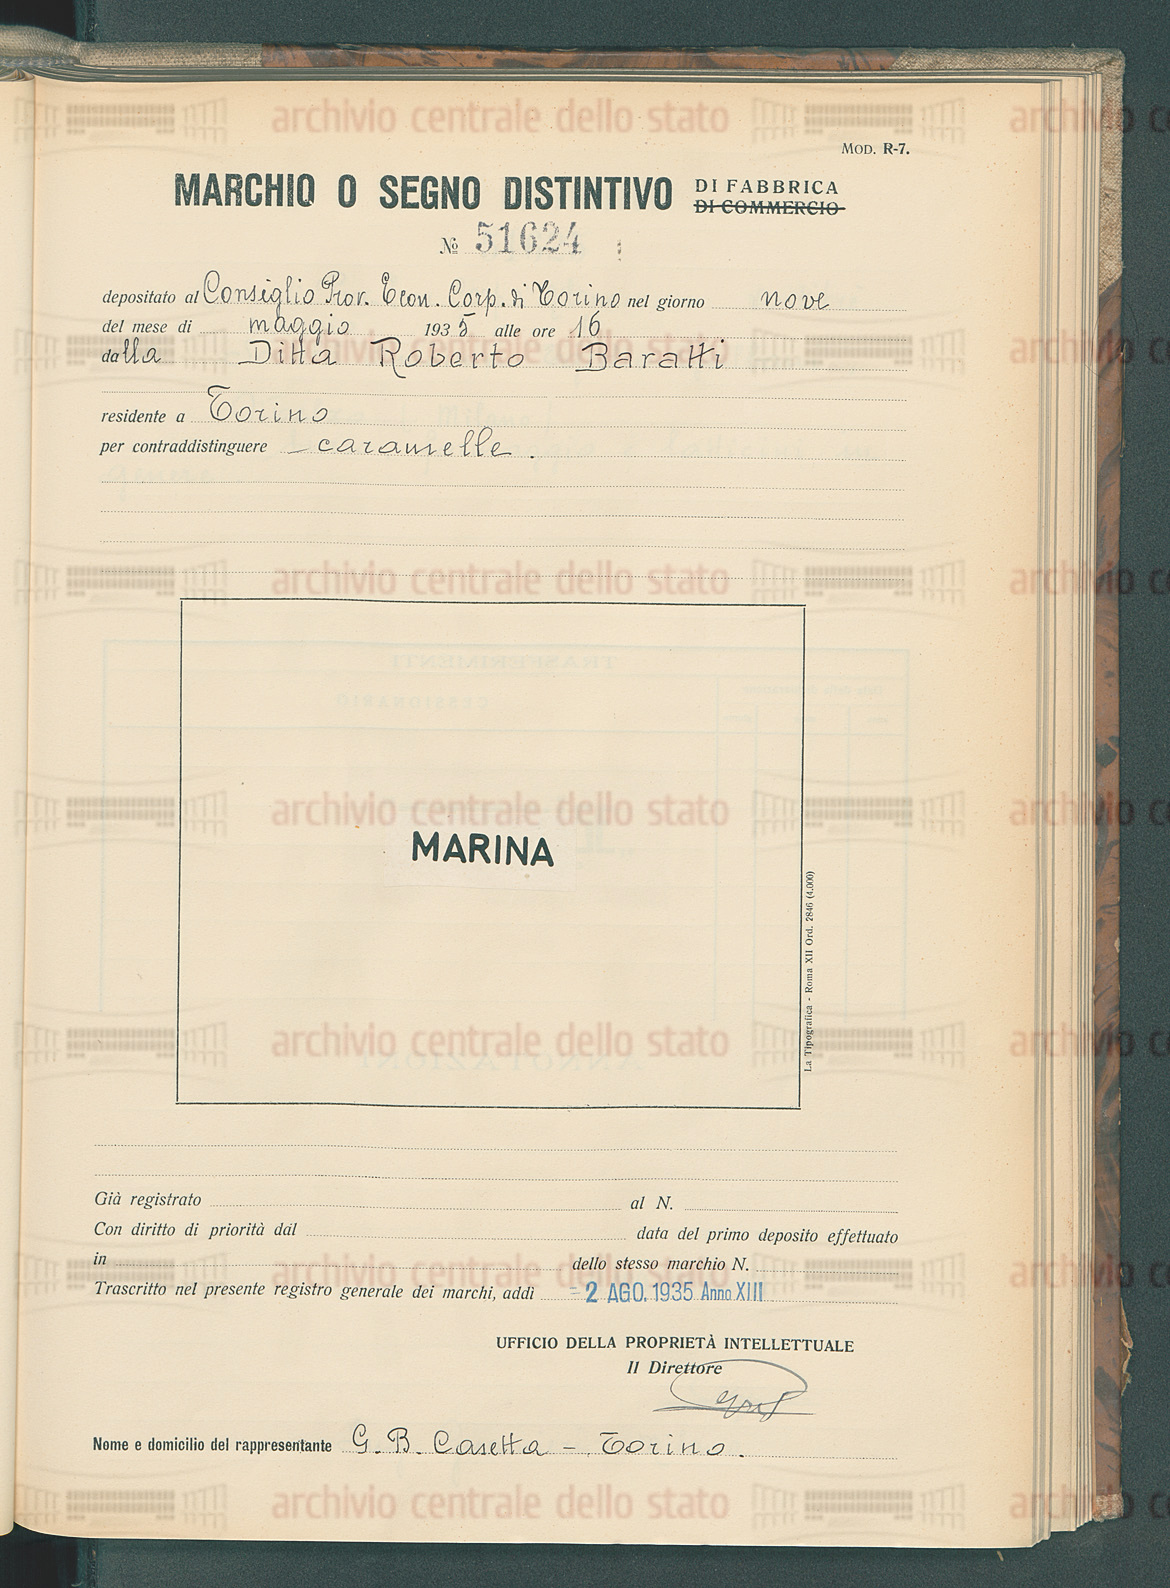 archivio centrale dello stato
MOD. R-7.
MARCHIO O SEGNO DISTINTIVO DI FABBRICA
DI COMMERCIO
No 51624
depositato al Consiglio Prov. Econ. Corp. di Torino nel giorno nove
del mese di maggio 1935 alle ore 16
dalla Ditta Roberto Baratti
residente a Torino
per contraddistinguere caramelle.
archivio centrale dello stato
archivio centrale dello stato
MARINA
La Tipografica - Roma XII Ord. 2846 (4.000)
archivio centrale dello stato
Già registrato al N.
Con diritto di priorità dal data del primo deposito effettuato
in dello stesso marchio N.
archivio centrale dello stato
Trascritto nel presente registro generale dei marchi, addì = 2 AGO. 1935 Anno XIII
UFFICIO DELLA PROPRIETÀ INTELLETTUALE
Il Direttore
Nome e domicilio del rappresentante G. B. Casetta - Torino.
archivio centrale dello stato